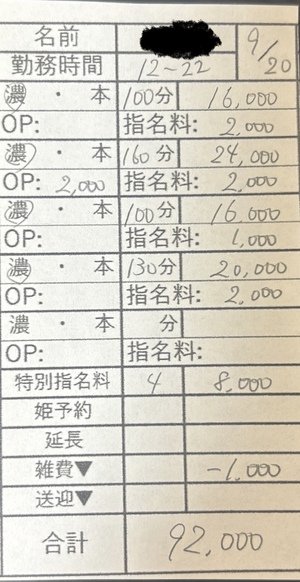 名前 9/20
勤務時間 12~22
濃・本 100分 16,000
OP: 指名料: 2,000
濃・本 160分 24,000
OP: 2,000 指名料: 2,000
濃・本 100分 16,000
OP: 指名料: 1,000
濃・本 130分 20,000
OP: 指名料: 2,000
濃・本 分
OP: 指名料:
特別指名料 4 8,000
姫予約
延長
雑費▼ -1,000
送迎▼
合計 92,000